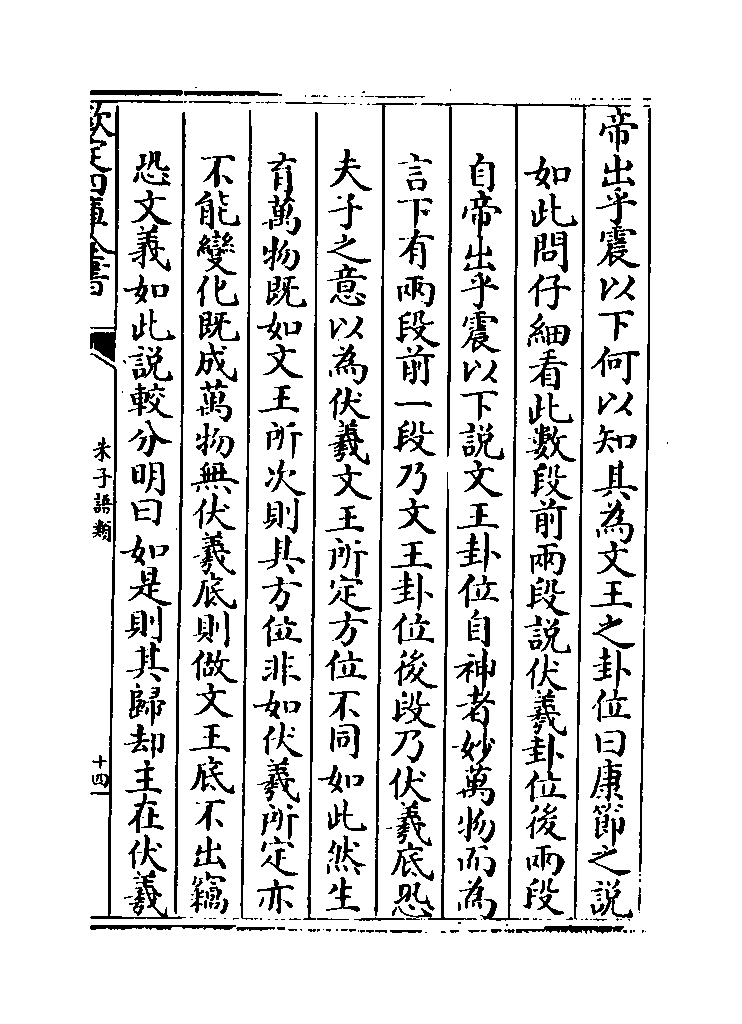 帝出乎震以下何以知其為文王之卦位曰康節之説
如此問仔細看此數段前兩段説伏羲卦位後兩段
自帝出乎震以下説文王卦位自神者妙萬物而為
言下有兩段前一段乃文王卦位後段乃伏羲底恐
夫子之意以為伏羲文王所定方位不同如此然生
育萬物既如文王所次則其方位非如伏羲所定亦
不能變化既成萬物無伏羲底則做文王底不出竊
恐文義如此説較分明曰如是則其歸却主在伏羲
欽定四庫全書
朱子語類
十四